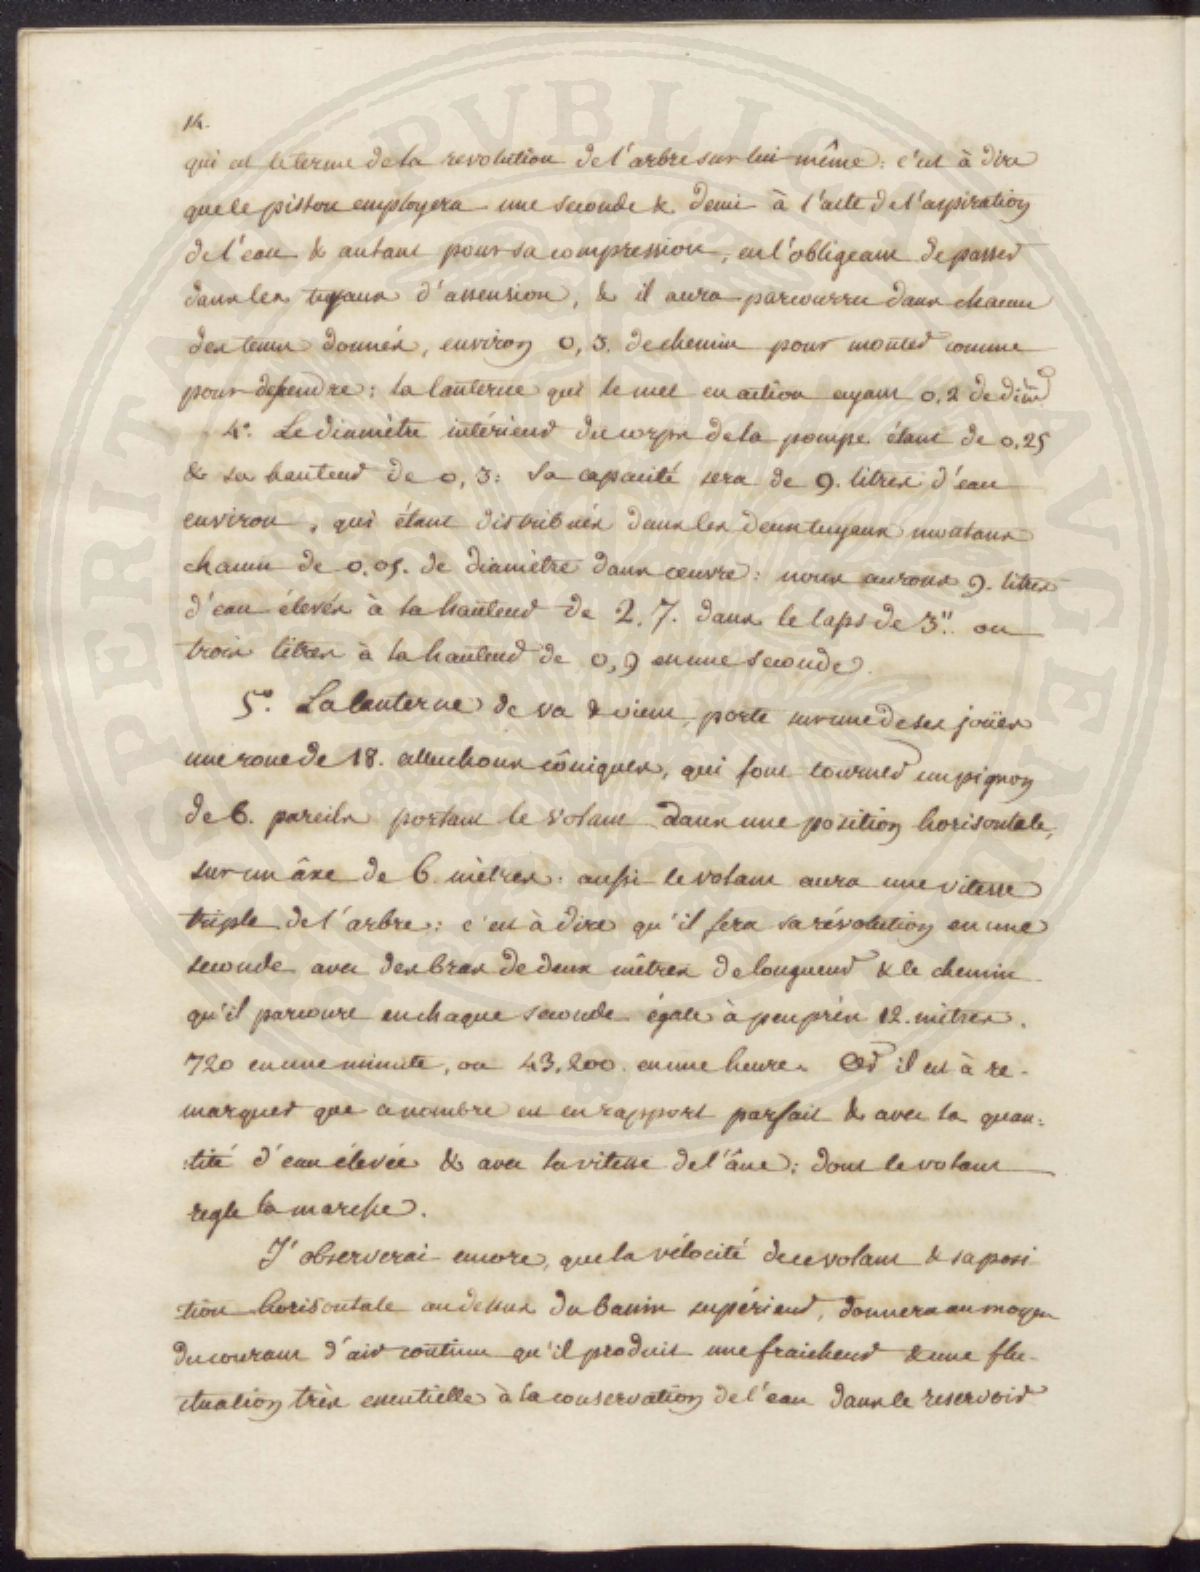 14.
qui est le terme de la revolution de l'arbre sur lui même: c'est à dire
que le piston employera une seconde & demi à l'acte de l'aspiration
de l'eau & autant pour sa compression, en l'obligeant de passer
dans les tuyaux d'assension, & il aura parcourru dans chacun
des tems donnés, environ 0,3. de chemin pour monter comme
pour dessendre: la lanterne qui le met en action ayant 0,2 de diam
4°. Le diamètre intérieur du corps de la pompe étant de 0,25
& sa hauteur de 0,3: sa capacité sera de 9. litres d'eau
environ, qui étant distribués dans les deux tuyaux montans
chacun de 0,05. de diamètre dans œuvre: nous aurons 9. litres
d'eau élevés à la hauteur de 2,7. dans le laps de 3". ou
trois litres à la hauteur de 0,9 en une seconde.
5°. La lanterne de va & vient, porte sur une de ses joües
une roue de 18. alluchons côniques, qui font tourner un pignon
de 6. pareils portant le volant dans une position horisontale,
sur un âxe de 6. mètres: aussi le volant aura une vitesse
triple de l'arbre: c'est à dire qu'il fera sa révolution en une
seconde avec des bras de deux mètres de longueur & le chemin
qu'il parcoure en chaque seconde égale à peu près 12. mètres.
720 en une minute, ou 43,200. en une heure. Or il est à re-
marquer que ce nombre est en rapport parfait & avec la quan:
:tité d'eau élevée & avec la vitesse de l'âne; dont le volant
regle la marche.
J'observerai encore, que la vélocité de ce volant & sa posi
tion horisontale au dessus du bassin supérieur, donnera au moyen
du courant d'air continu qu'il produit une fraicheur & une flu-
ctuation très essentielle à la conservation de l'eau dans le reservoir
SPERITA PUBLICAM AUGENT